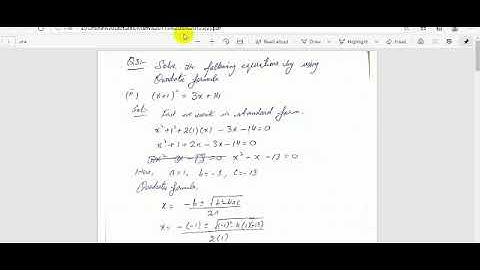 Read aloud
Draw
Highlight
Erase
Q3:- Solve the following equations by using
Quadratic formula
(x+1)² = 3x+14
Sol: First we work in standard form.
x²+1²+2(1)(x) -3x-14=0
x²+1+2x-3x-14=0
x²-x-13=0
Here, a=1, b=-1, c=-13
Quadratic formula.
x = -b ± √b²-4ac
2a
x = -(-1) ± √(-1)²-4(1)(-13)
2(1)